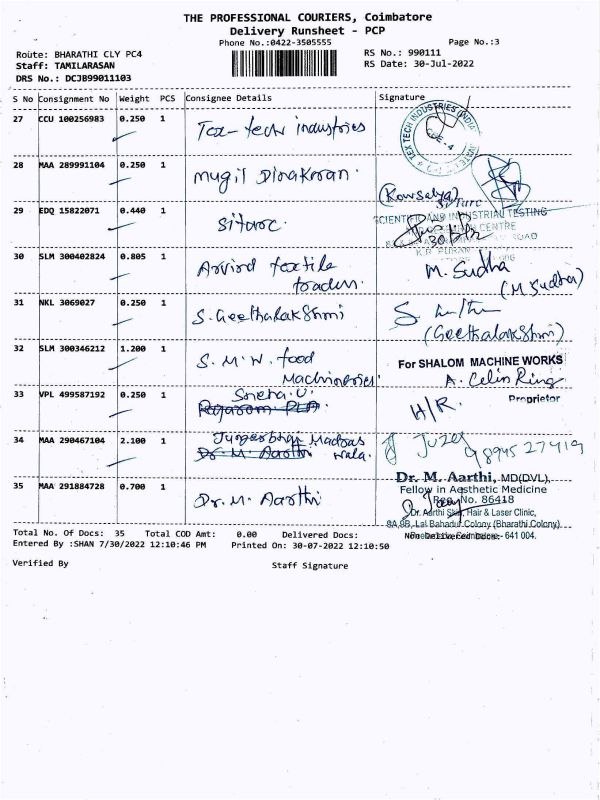 THE PROFESSIONAL COURIERS, Coimbatore
Delivery Runsheet - PCP
Phone No.:0422-3505555
Page No.:3
Route: BHARATHI CLY PC4
RS No.: 990111
Staff: TAMILARASAN
RS Date: 30-Jul-2022
DRS No.: DCJB99011103
S No Consignment No Weight PCS Consignee Details Signature
27 CCU 100256983 0.250 1 Tex-tech industries
TEX TECH INDUSTRIES (INDIA)
28 MAA 289991104 0.250 1 mugil Dinakaran.
(Kowsalya)
29 EDQ 15822071 0.440 1 Sitarc.
SCIENTIFIC AND INDUSTRIAL TESTING
CENTRE
ROAD
30 SLM 300402824 0.805 1 Arvind textile traders.
M. Sudha
(M Sudha)
31 NKL 3069027 0.250 1 S. Geethalakshmi
(Geethalakshmi)
32 SLM 300346212 1.200 1 S.M.W. food Machineries
For SHALOM MACHINE WORKS
Proprietor
33 VPL 499587192 0.250 1 Sneha.U.
H/R.
34 MAA 290467104 2.100 1 Madras wala.
Dr. M. Aarthi
Juzer
35 MAA 291884728 0.700 1 Dr. M. Aarthi
Dr. M. Aarthi, MD(DVL),
Fellow in Aesthetic Medicine
Reg No. 86418
Dr. Aarthi Skin, Hair & Laser Clinic,
9A,9B, Lal Bahadur Colony (Bharathi Colony)
Coimbatore - 641 004.
Total No. Of Docs: 35 Total COD Amt: 0.00 Delivered Docs: Non Delivered Docs:
Entered By :SHAN 7/30/2022 12:10:46 PM Printed On: 30-07-2022 12:10:50
Verified By
Staff Signature